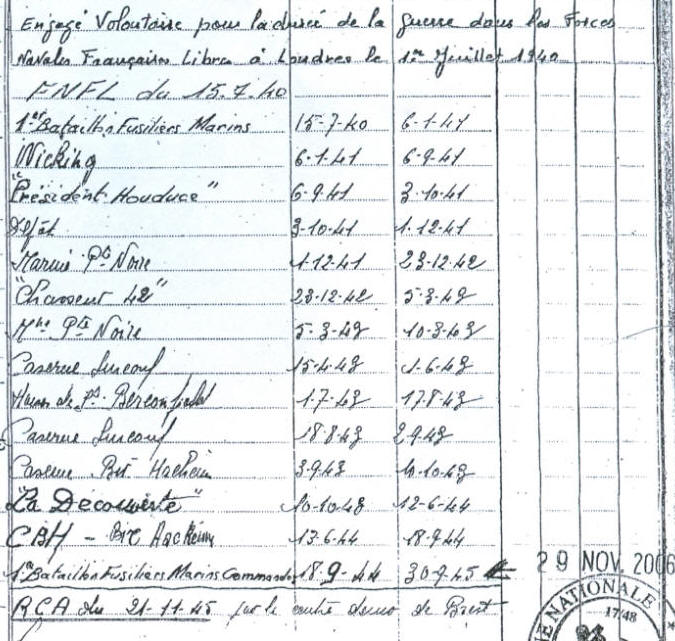 Engagé Volontaire pour la durée de la guerre dans les Forces
Navales Françaises Libres à Londres le 1er Juillet 1940
FNFL du 15.7.40
1er Bataillon Fusiliers Marins 15-7-40 6-1-41
Wicking 6-1-41 6-9-41
"Président Houduce" 6-9-41 3-10-41
Dépôt 3-10-41 1-12-41
Marine Pte Noire 1-12-41 23-12-42
"Chasseur 42" 23-12-42 5-3-43
Mne Pte Noire 5-3-43 10-3-43
Caserne Surcouf 15-4-43 1-6-43
de Beaconsfield 1-7-43 17-8-43
Caserne Surcouf 18-8-43 2-9-43
Caserne Bir Hacheim 3-9-43 10-43
"La Découverte" 10-10-43 12-6-44
CBH - Bir Hackeim 13-6-44 18-9-44
1er Bataillon Fusiliers Marins Commando 18-9-44 30-9-45
RCA du 21-11-45 par le centre démo de Brest
29 NOV. 2006
NATIONALE
17/48